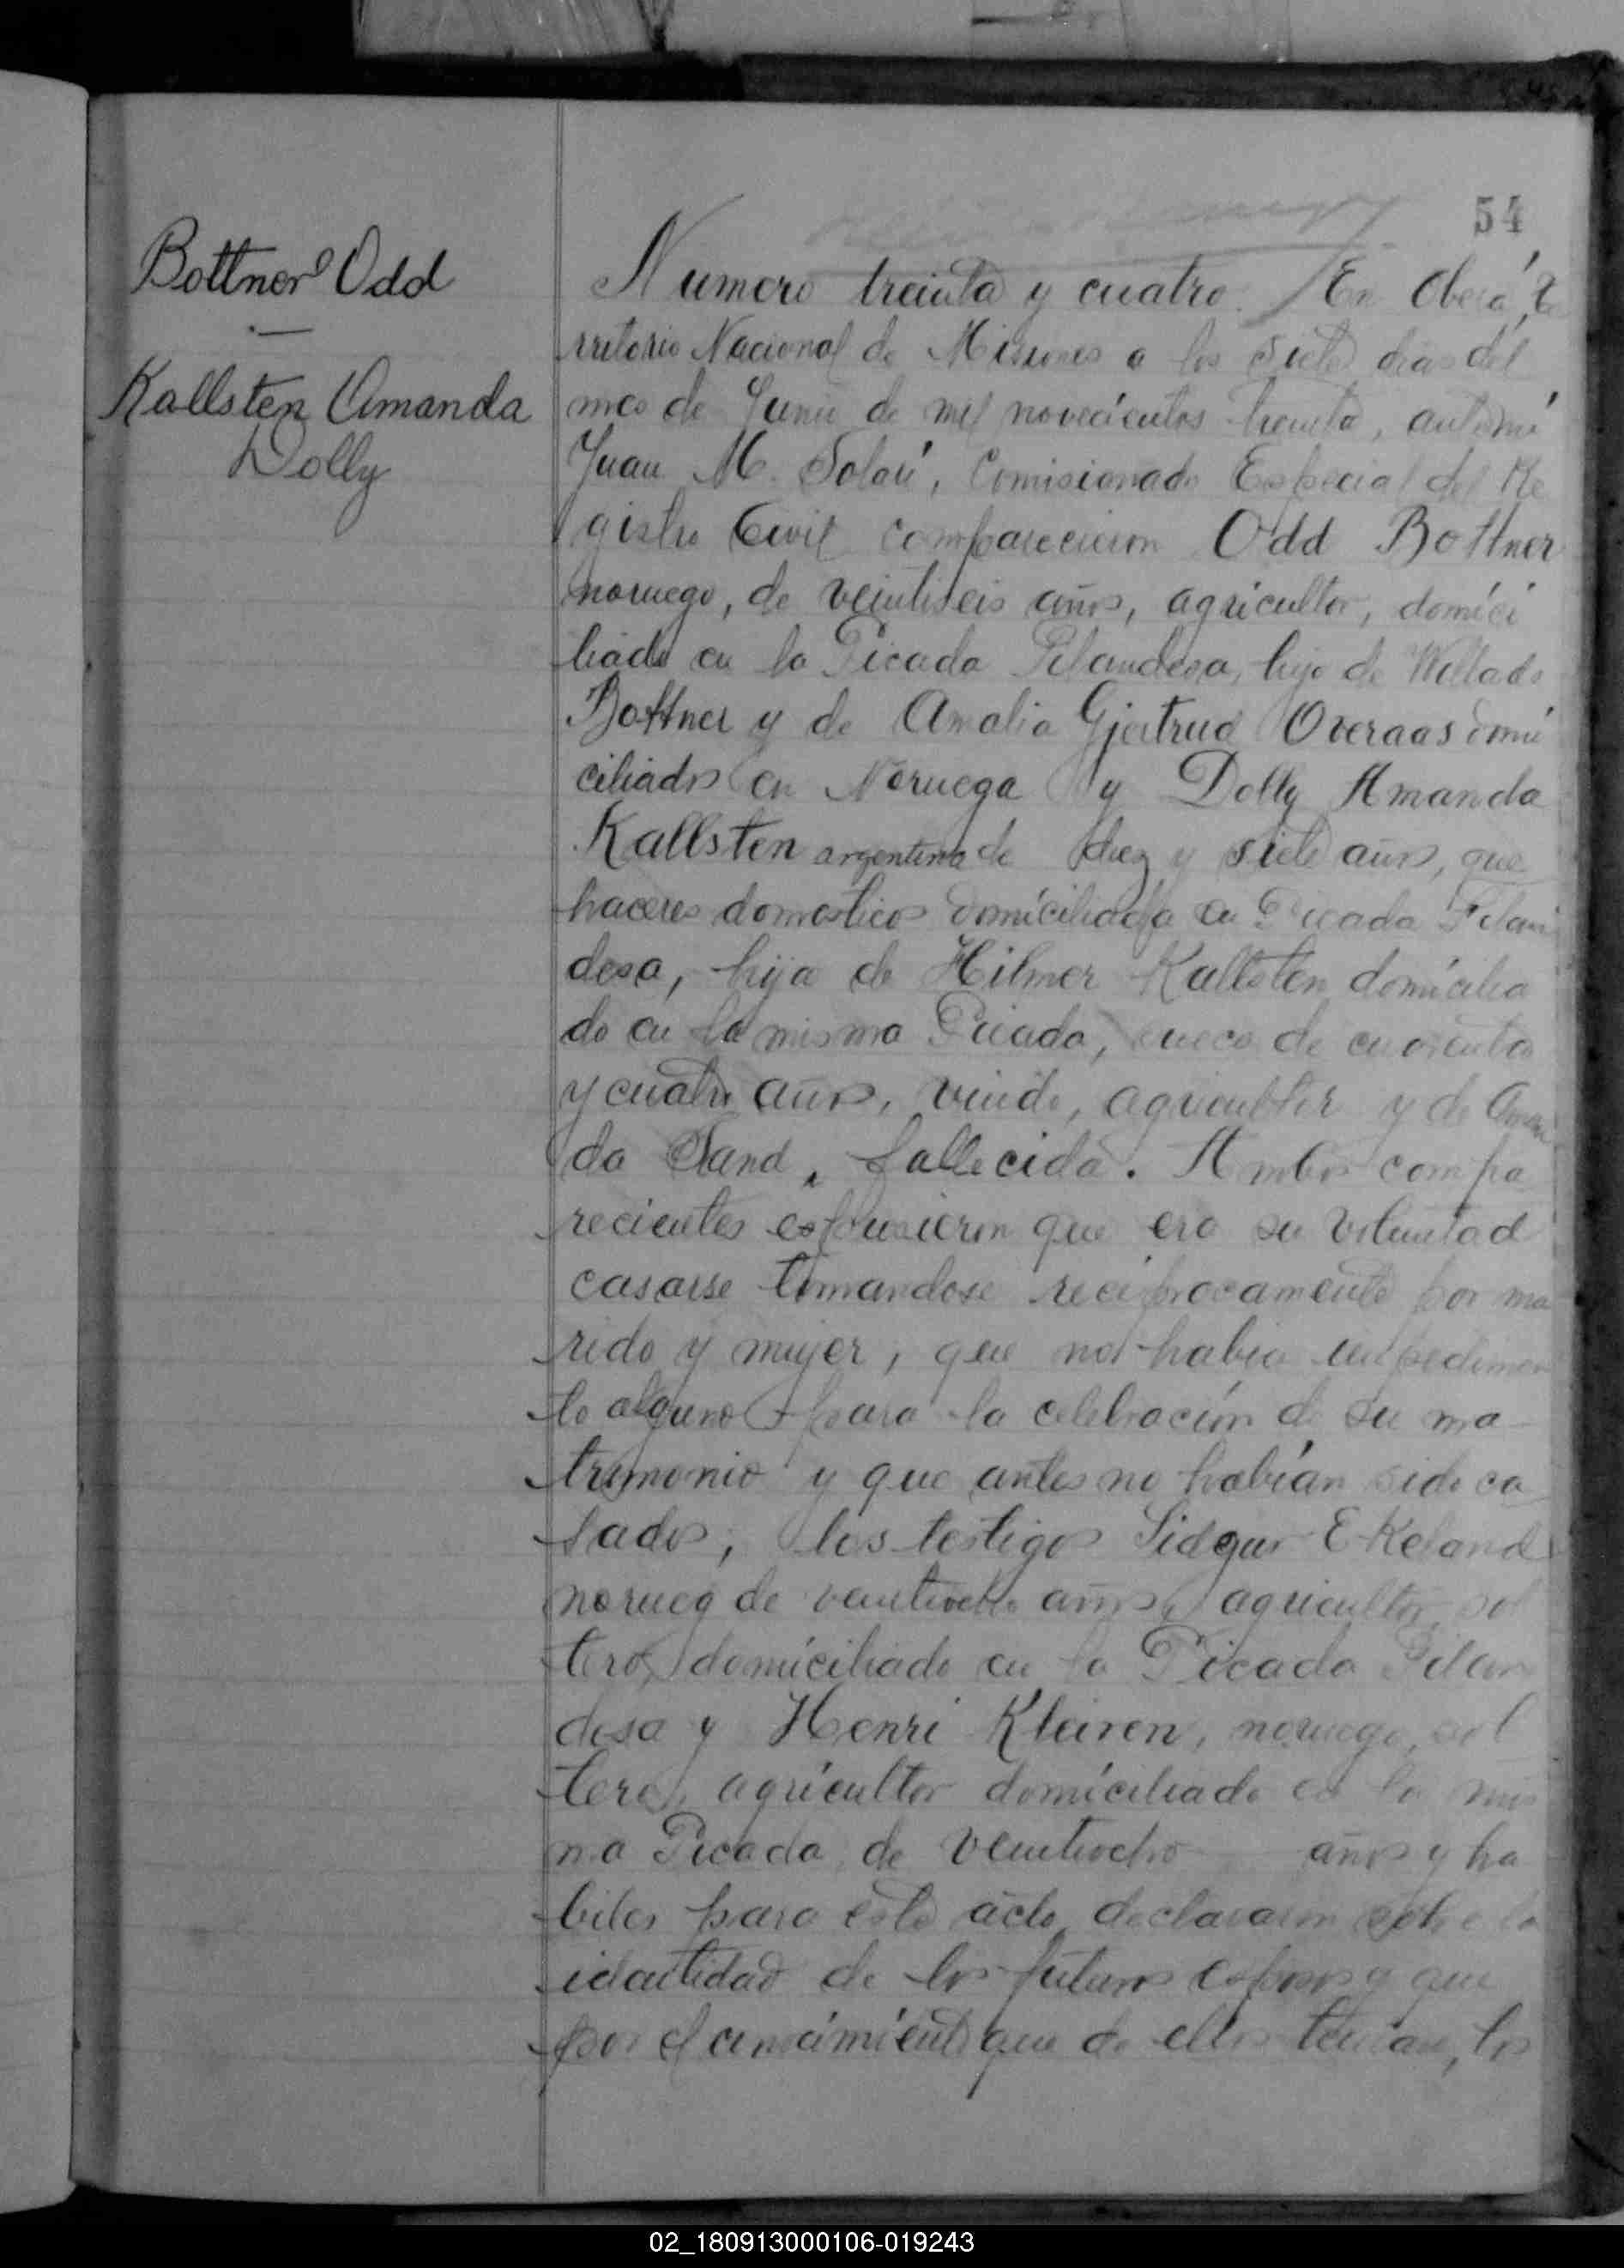 54
Bottner Odd
Kallsten Amanda
Dolly
Numero treinta y cuatro. En Oberá, Te
rritorio Nacional de Misiones a los siete dias del
mes de Junio de mil novecientos treinta, ante mi
Juan M. Solari, Comisionado Especial del Re
gistro Civil comparecieron Odd Bottner
noruego, de veintiseis años, agricultor, domici
liado en la Picada Filandesa, hijo de Willado
Bottner y de Amalia Gjertrud Overaas domi
ciliados en Noruega y Dolly Amanda
Kallsten argentina de diez y siete años, que
haceres domesticos domiciliada en Picada Filan
desa, hija de Hilmer Kallsten domicilia
do en la misma Picada, sueco de cuarenta
y cuatro años, viudo, agricultor y de Aman
da Sand, fallecida. Ambos compa
recientes expusieron que era su voluntad
casarse tomandose reciprocamente por ma
rido y mujer, que no habia impedimen
to alguno para la celebración de su ma
trimonio y que antes no habían sido ca
sados, los testigos Sidgur Ekeland
noruego de veintiocho años, agricultor, sol
tero, domiciliado en la Picada Filan
desa y Henri Kleiven, noruego, sol
tero, agricultor domiciliado en la mis
ma Picada, de veintiocho años y ha
biles para este acto, declararon sobre la
identidad de los futuros esposos y que
por el conocimiento que de ellos tenian, los
02_180913000106-019243